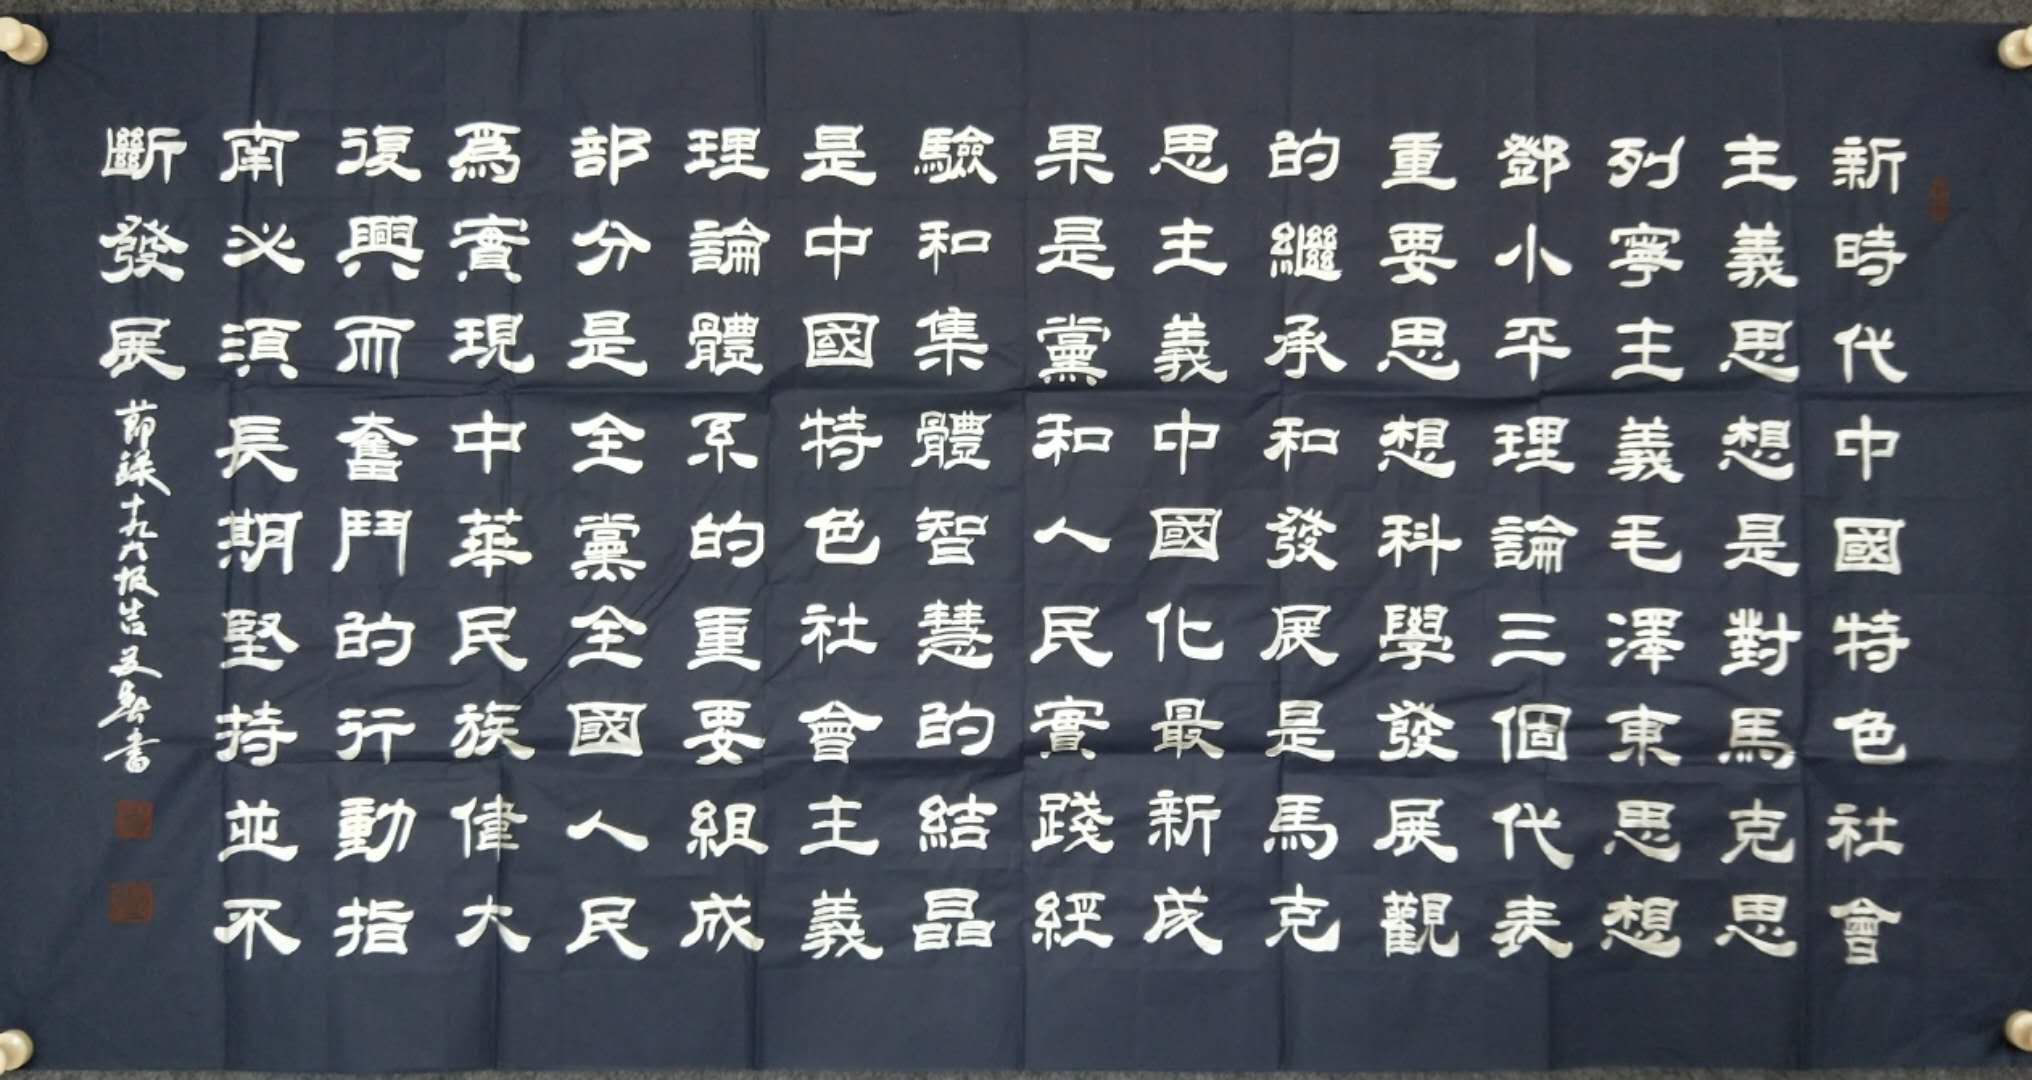 新時代中國特色社會
主義思想是對馬克思
列寧主義毛澤東思想
鄧小平理論三個代表
重要思想科學發展觀
的繼承和發展是馬克
思主義中國化最新成
果是黨和人民實踐經
驗和集體智慧的結晶
是中國特色社會主義
理論體系的重要組成
部分是全黨全國人民
爲實現中華民族偉大
復興而奮鬥的行動指
南必須長期堅持並不
斷發展
節錄十九大报告 書